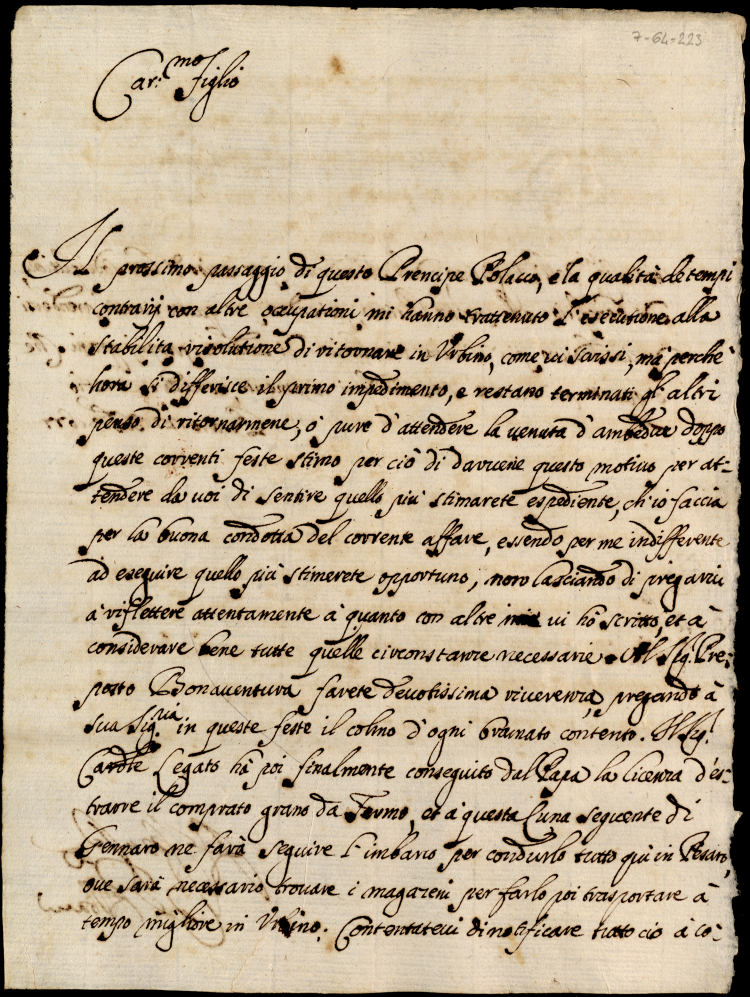 7-64-223
Car.mo Figlio
Il prossimo passaggio di questo Prencipe Polacco, e la qualità de tempi
contrarij con altre occupationi mi hanno trattenuto l'esecutione alla
stabilita risolutione di ritornare in Urbino, come vi scrissi, mà perche
hora si differisce il primo impedimento, e restano terminati gl'altri
penso di ritornarmene, ò pure d'attendere la venuta d'ambedue doppo
queste correnti feste stimo per ciò di darvene questo motivo per at-
tendere da voi di sentire quello più stimarete espediente, ch'io faccia
per la buona condotta del corrente affare, essendo per me indifferente
ad eseguire quello più stimerete opportuno, non lasciando di pregarvi
à riflettere attentamente à quanto con altre mie vi hò scritto, et à
considerare bene tutte quelle circonstanze necessarie. Al Sig. Pre-
posto Bonaventura farete devotissima riverenza, pregando à
sua Sig.ria in queste feste il colmo d'ogni bramato contento. Il Sig.r
Cardle Legato hà poi finalmente conseguito dal Papa la licenza d'es-
trarre il comprato grano da Fermo, et à questa Luna seguente di
Gennaro ne farà seguire l'imbarco per condurlo tutto quì in Pesaro,
ove sarà necessario trovare i magazeni per farlo poi trasportare à
tempo migliore in Urbino. Contentatevi di notificare tutto ciò à co-